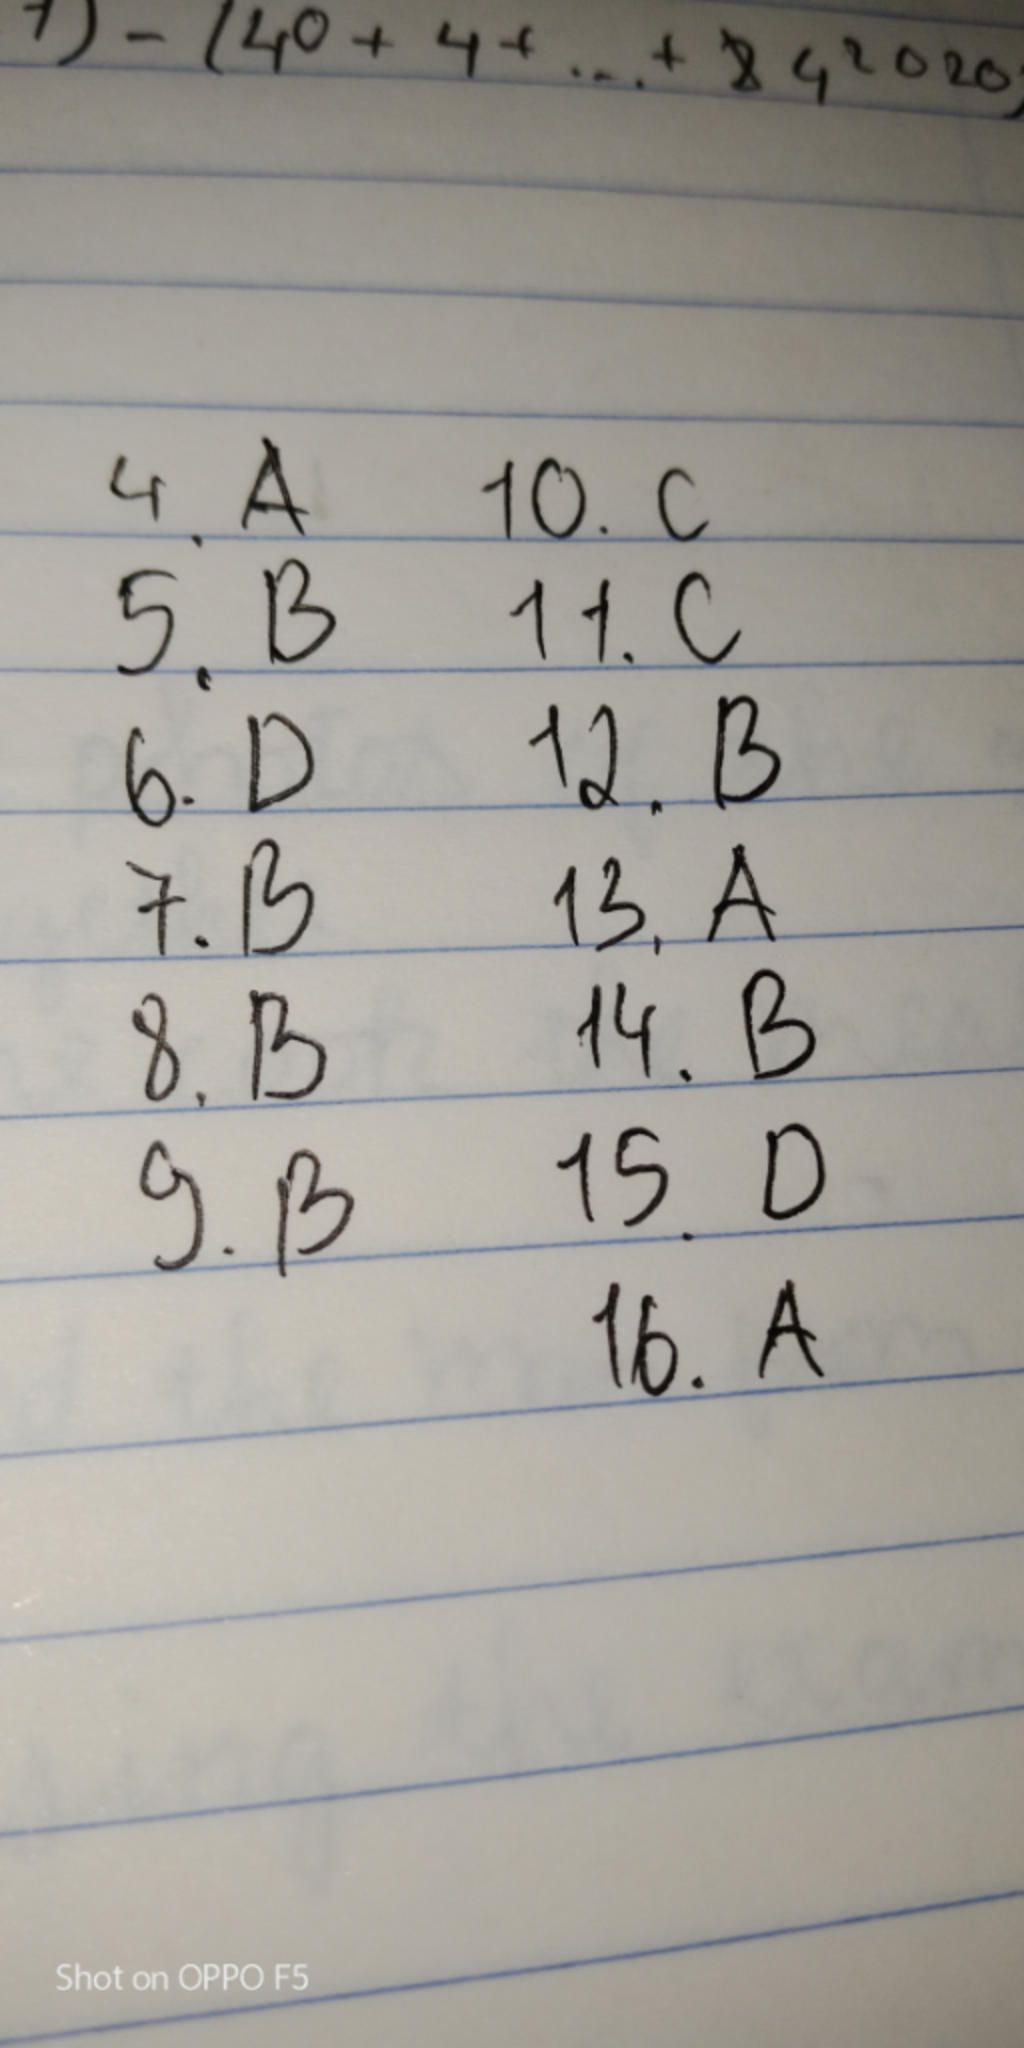 7) - (4⁰ + 4 + ... + 4²⁰²⁰)
4. A
5. B
6. D
7. B
8. B
9. B
10. C
11. C
12. B
13. A
14. B
15. D
16. A
Shot on OPPO F5